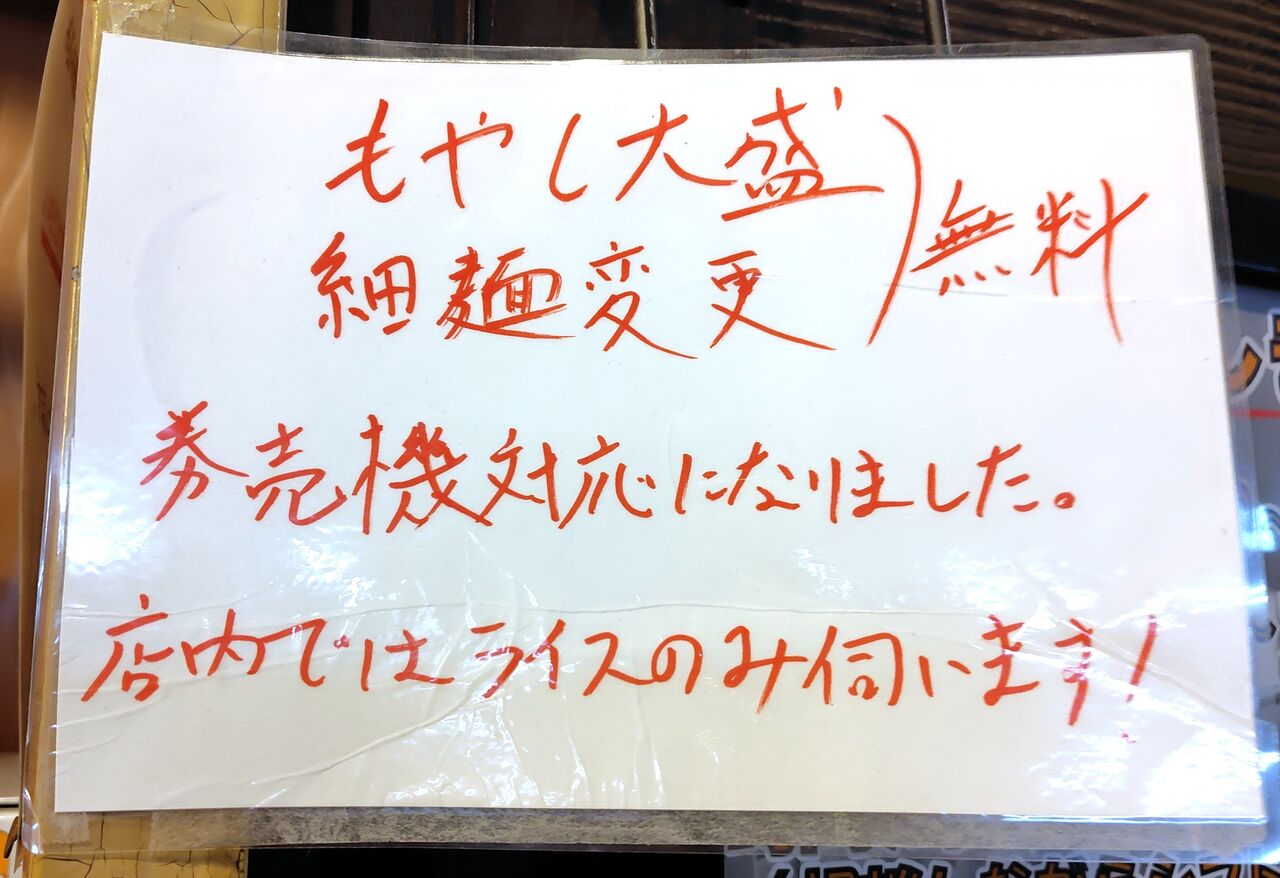 もやし大盛
細麺変更
)無料
券売機対応になりました。
店内ではライスのみ伺います!